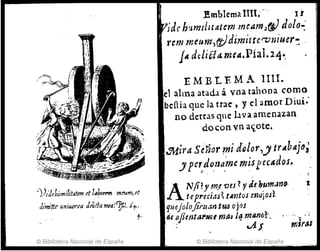 Vide humilitatem et laborem meum, et
dimitte universa delicta mea. Psal. 24.
4.
© Biblioteca Nacional de España
Emblema IIII. 11
Vide humilitatem meam, & dolo-
rem meum, & dimitte vniuer-
sa delicta mea. Psal. 24.
EMBLEMA IIII.
el alma atada à vna tahona como
bestia que la trae, y el amor Diui-
no detras que la va amenazan
do con vn açote.
Mira Señor mi dolor, y trabajo,
y perdoname mis pecados.
ANsi? y me ves? y de humano 1
te precias? tantos enojos?
que solo siruan tus ojos
de assentarme mas la mano?
A 5 miras
© Biblioteca Nacional de España